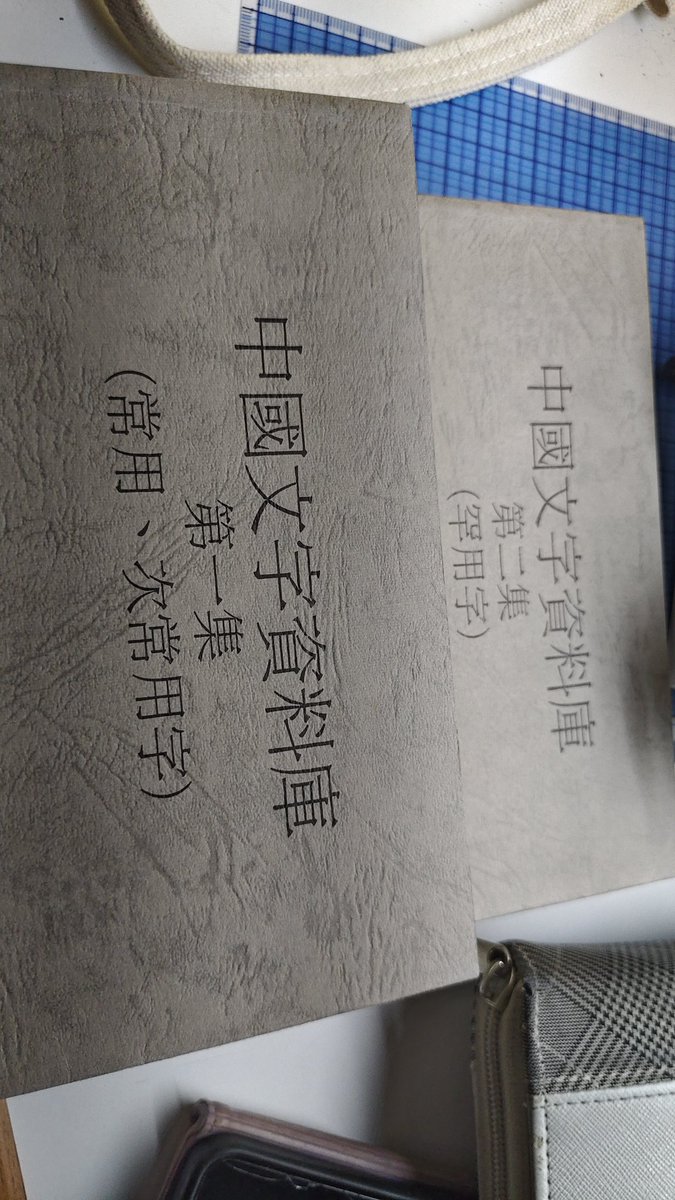 中國文字資料庫
第一集
(常用、次常用字)
中國文字資料庫
第二集
(罕用字)